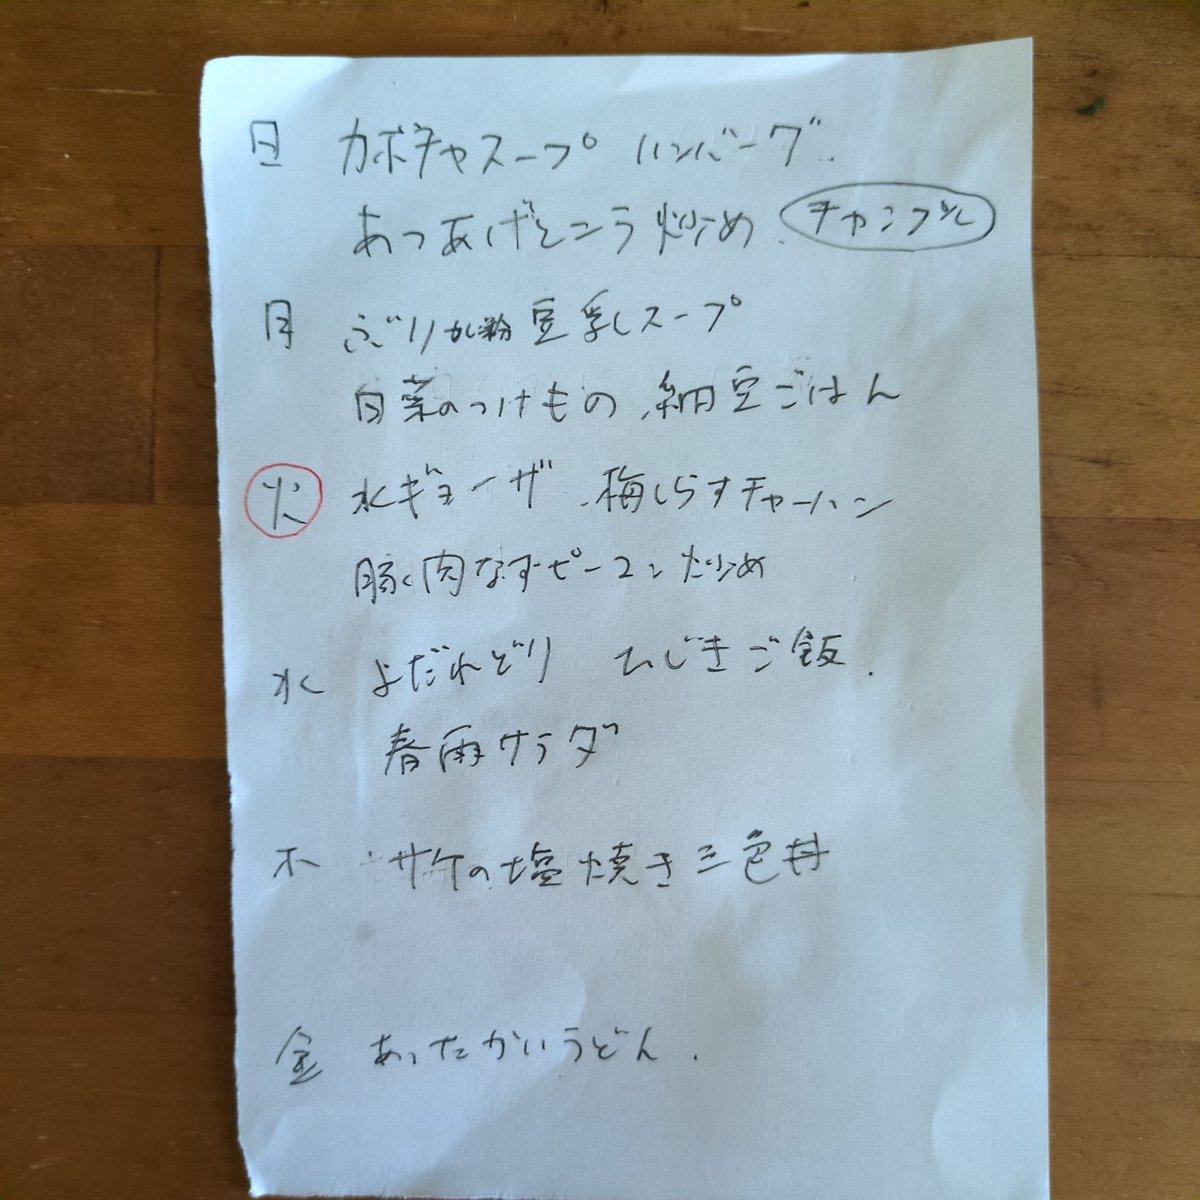 日 カボチャスープ ハンバーグ.
あつあげとニラ炒め. チャンプル
月 ぶり 豆乳スープ
白菜のつけもの、納豆ごはん
火 水ギョーザ、梅しらすチャーハン
豚肉なすピーマン炒め
水 よだれどり ひじきご飯.
春雨サラダ
木 サケの塩焼き三色丼
金 あったかいうどん.